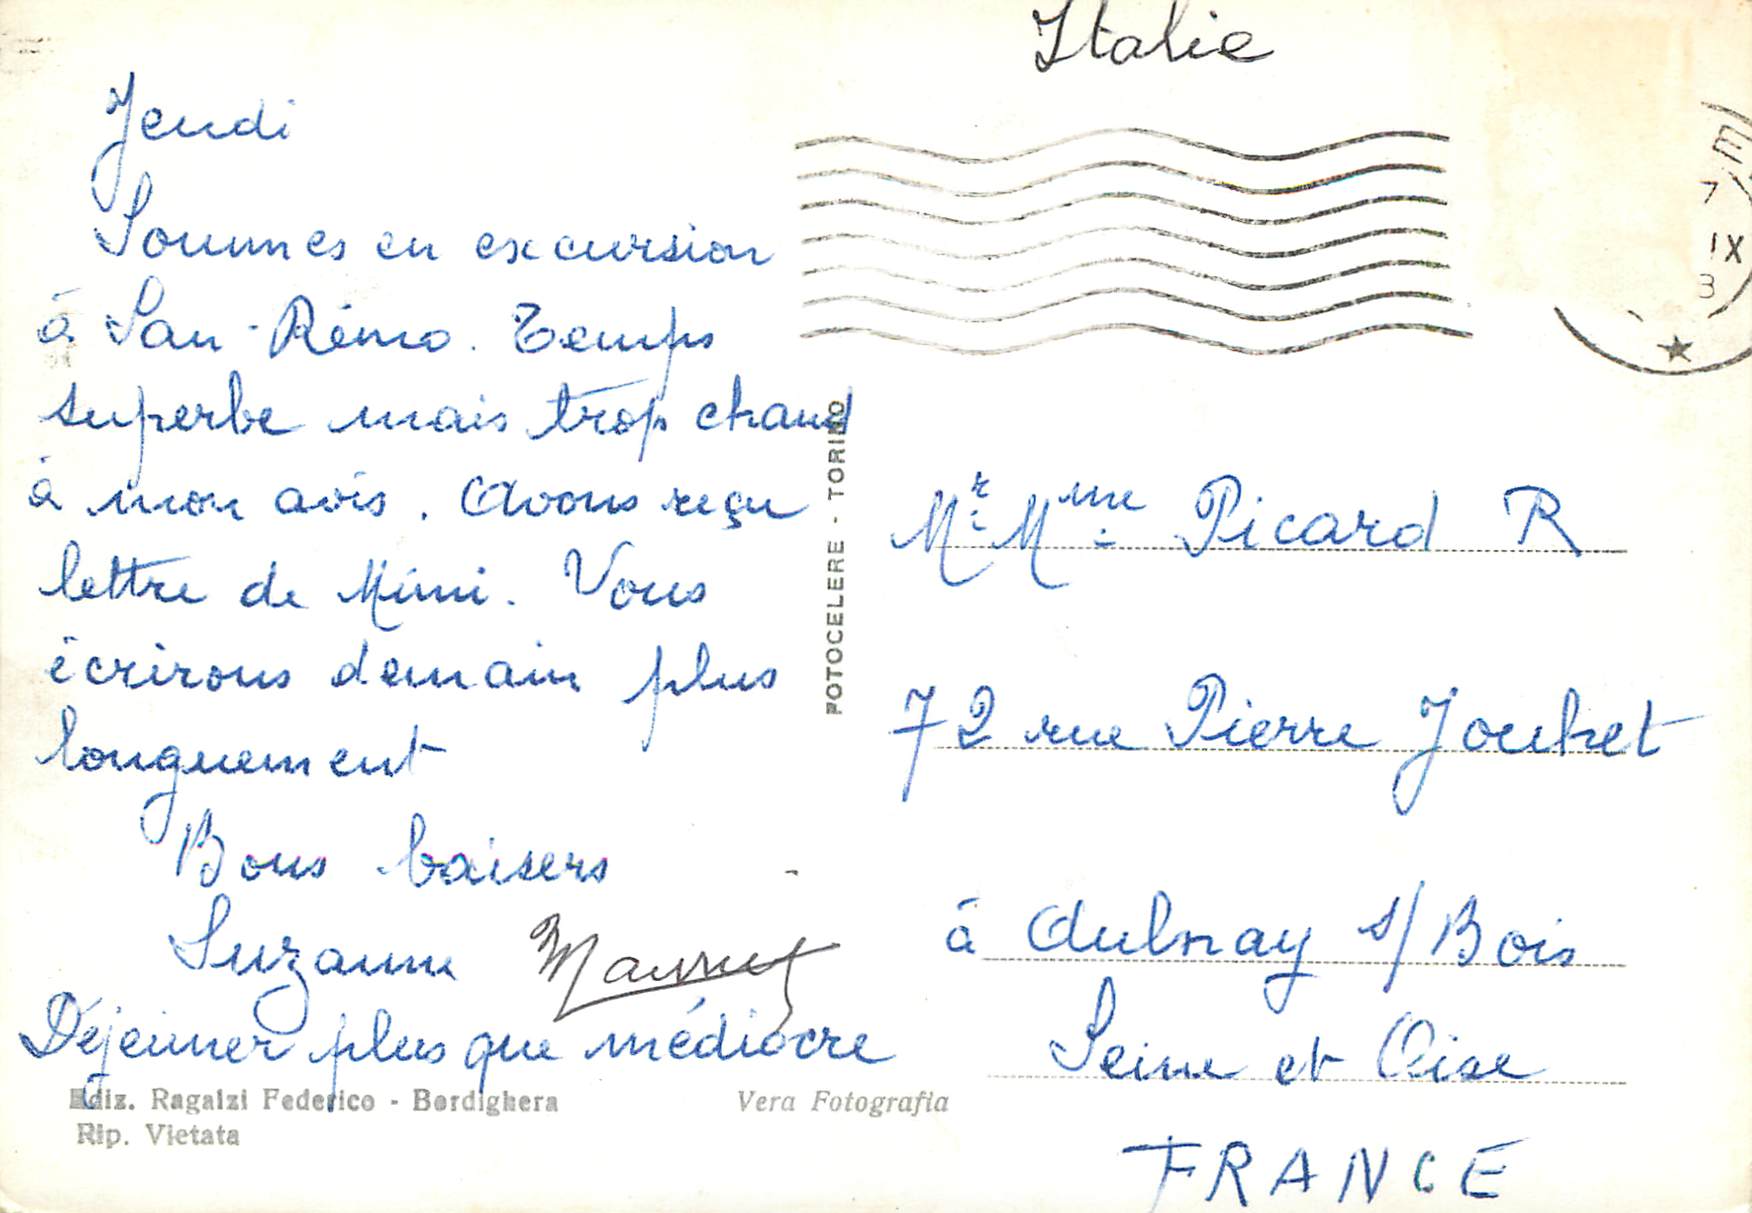 Italie
Jeudi
Sommes en excursion
à San-Rémo. Temps
superbe mais trop chaud
à mon avis. Avons reçu
lettre de Mimi. Vous
écrirons demain plus
longuement
Bons baisers
Suzanne
Déjeuner plus que médiocre
Ediz. Ragalzi Federico - Bordighera
Rip. Vietata
Vera Fotografia
FOTOCELERE - TORINO
7
IX
Mr. Mme. Picard R
72 rue Pierre Jouhet
à Aulnay s/Bois
Seine et Oise
FRANCE